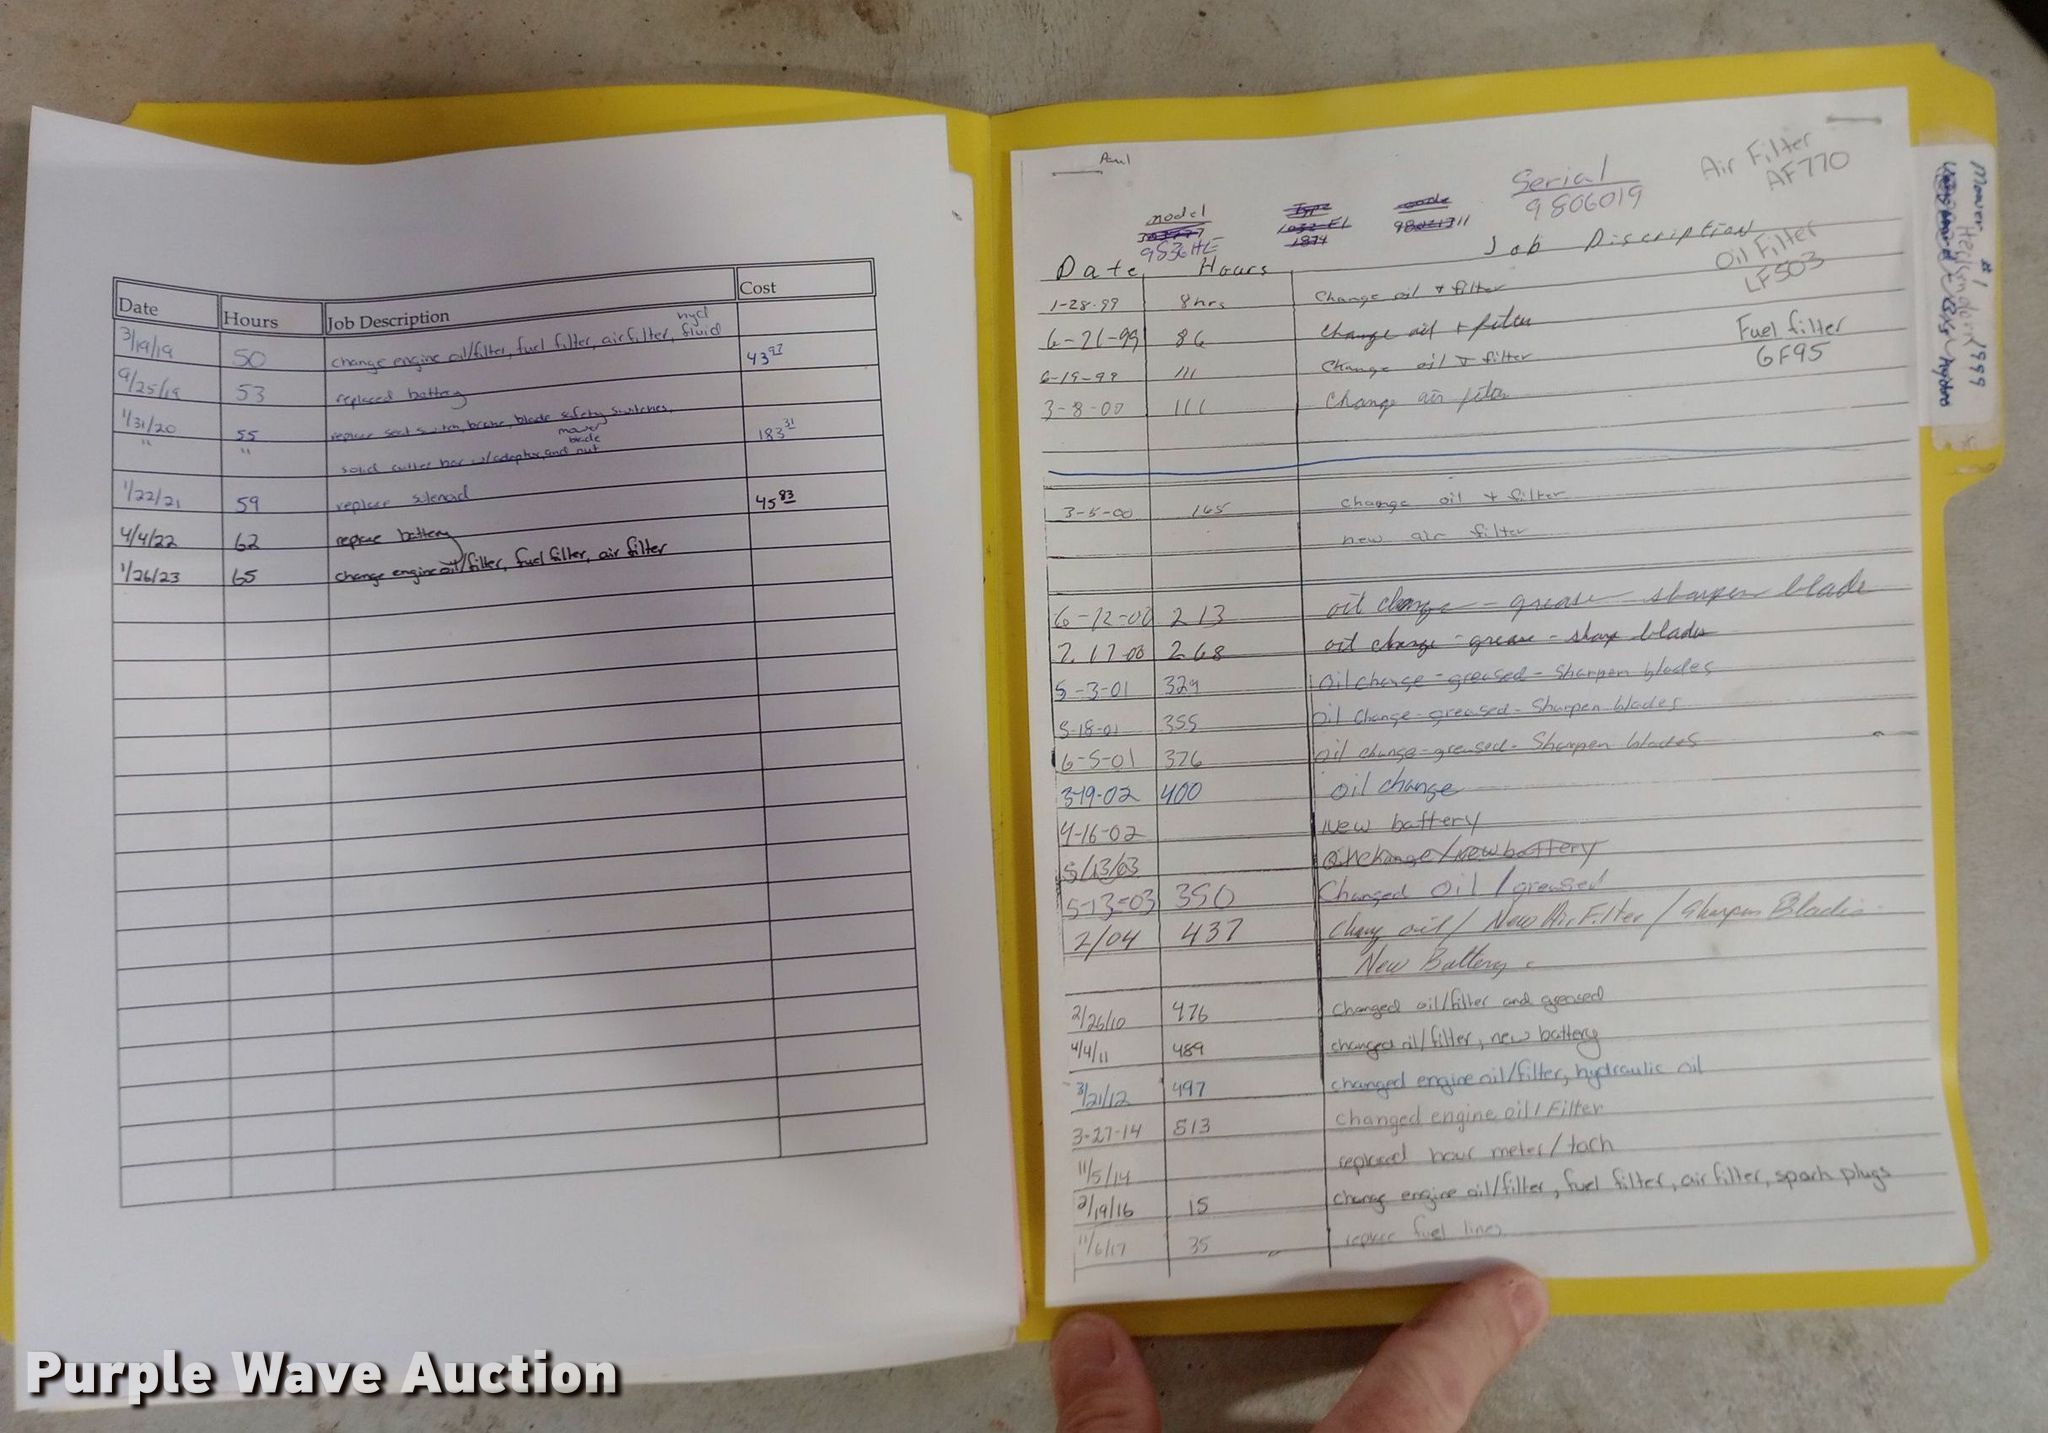 Date Hours Job Description Cost
3/19/19 50 change engine oil/filter, fuel filter, air filter, hyd fluid 43 97
9/25/19 53 replaced battery
1/31/20 55 replace seat switch, brake, blade safety switches, 183 31
" " solid cutter bar w/adapter, and mower blade nut
1/22/21 59 replace solenoid 45 83
4/4/22 62 replace battery
1/26/23 65 change engine oil/filter, fuel filter, air filter
Paul
model
9536HE
Serial
9806019
Air Filter
AF770
Oil Filter
LF503
Fuel filter
GF95
Date Hours Job Discription
1-28-99 8hrs Change oil + filter
6-21-99 86 Change oil + filter
6-19-99 111 Change oil + filter
3-8-00 111 Change air filter
3-5-00 165 change oil + filter
new air filter
6-12-00 213 oil change - grease - sharpen blade
7.17-00 268 oil change - grease - sharp blades
5-3-01 329 oil change - greased - Sharpen blades
5-18-01 355 oil change - greased - Sharpen blades
6-5-01 376 oil change - greased - Sharpen blades
3-19-02 400 oil change
4-16-02 New battery
5/13/03 Oil change/new battery
5-13-03 350 Changed Oil / greased
2/04 437 Chang oil / New Air Filter / Sharpen Blades
New Battery
2/26/10 476 changed oil/filter and greased
4/4/11 489 changed oil/filter, new battery
3/21/12 497 changed engine oil/filter, hydraulic oil
3-27-14 513 changed engine oil/Filter
11/5/14 replaced hour meter/tach
2/19/16 15 change engine oil/filter, fuel filter, air filter, spark plugs
11/6/17 35 replace fuel lines
Mower #1
1999
hydro
Purple Wave Auction